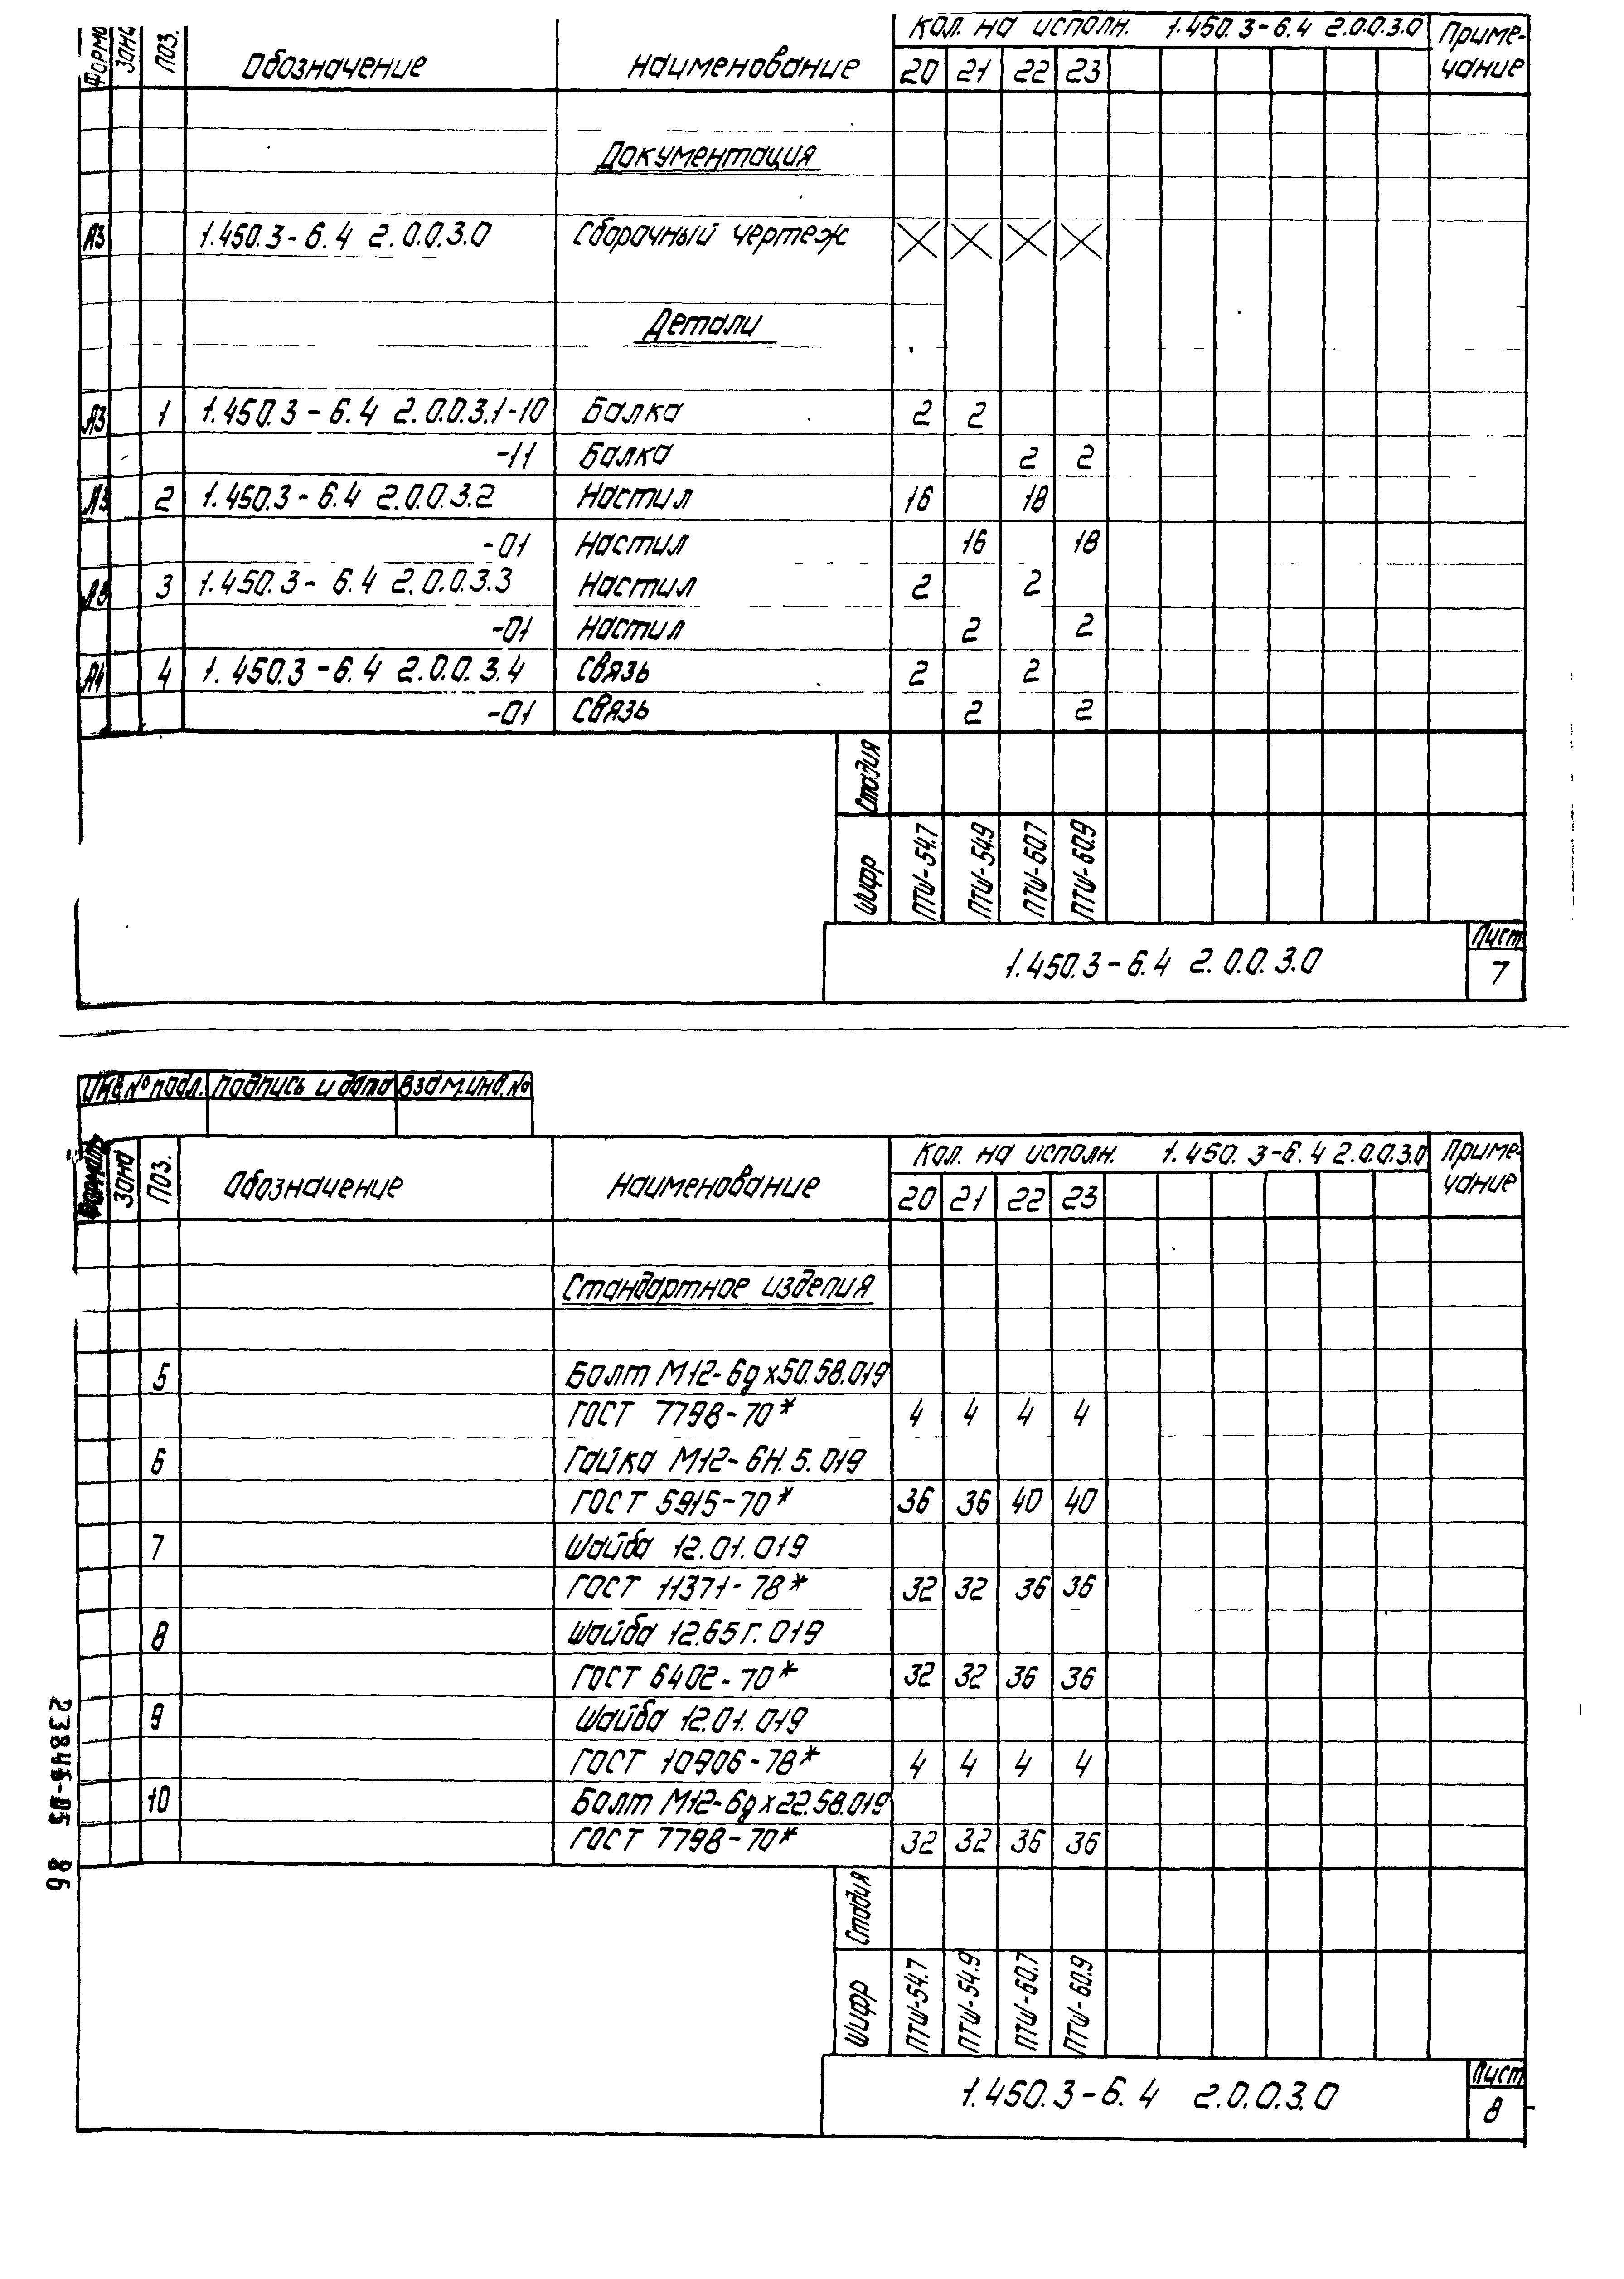 Формат Зона Поз. Обозначение Наименование Кол. на исполн. 1.450.3-6.4 2.0.0.3.0 Приме-чание
20 21 22 23
Документация
А3 1.450.3-6.4 2.0.0.3.0 Сборочный чертеж
Детали
А3 1 1.450.3-6.4 2.0.0.3.1-10 Балка 2 2
-11 Балка 2 2
А3 2 1.450.3-6.4 2.0.0.3.2 Настил 16 18
-01 Настил 16 18
А3 3 1.450.3-6.4 2.0.0.3.3 Настил 2 2
-01 Настил 2 2
А4 4 1.450.3-6.4 2.0.0.3.4 Связь 2 2
-01 Связь 2 2
Стадия
Шифр ПТШ-54.7 ПТШ-54.9 ПТШ-60.7 ПТШ-60.9
1.450.3-6.4 2.0.0.3.0 Лист 7
Инв.№ подл. Подпись и дата Взам.инв.№
Формат Зона Поз. Обозначение Наименование Кол. на исполн. 1.450.3-6.4 2.0.0.3.0 Приме-чание
20 21 22 23
Стандартное изделия
5 Болт М12-6gх50.58.019
ГОСТ 7798-70* 4 4 4 4
6 Гайка М12-6Н.5.019
ГОСТ 5915-70* 36 36 40 40
7 Шайба 12.01.019
ГОСТ 11371-78* 32 32 36 36
8 Шайба 12.65Г.019
ГОСТ 6402-70* 32 32 36 36
9 Шайба 12.01.019
ГОСТ 10906-78* 4 4 4 4
10 Болт М12-6gх22.58.019
ГОСТ 7798-70* 32 32 36 36
Стадия
Шифр ПТШ-54.7 ПТШ-54.9 ПТШ-60.7 ПТШ-60.9
1.450.3-6.4 2.0.0.3.0 Лист 8
23845-05 86